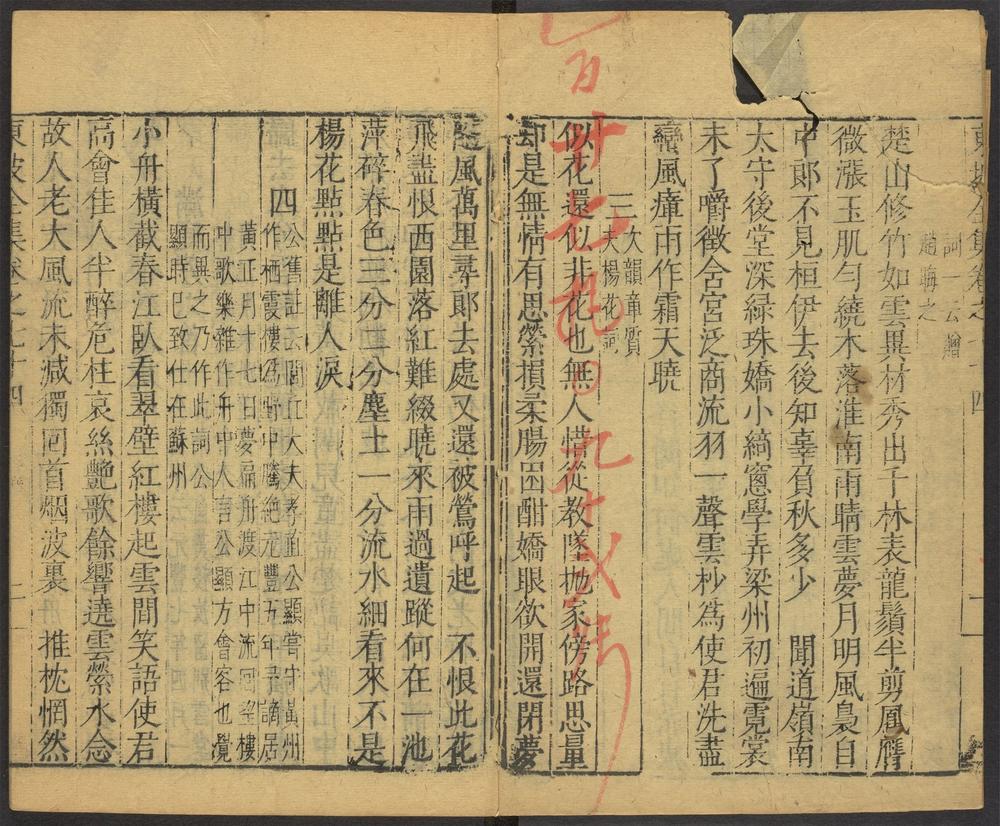 東坡全集卷之七十四
詞一云贈
趙晦之
楚山修竹如雲異材秀出千林表龍鬚半剪鳳膺
微漲玉肌勻繞木落淮南雨晴雲夢月明風裊自
中郎不見桓伊去後知辜負秋多少　聞道嶺南
太守後堂深綠珠嬌小綺窻學弄梁州初遍霓裳
未了嚼徵含宮泛商流羽一聲雲杪為使君洗盡
蠻風瘴雨作霜天曉
三
次韻章質
夫楊花詞
似花還似非花也無人惜從教墜拋家傍路思量
却是無情有思縈損柔腸困酣嬌眼欲開還閉夢
隨風萬里尋郎去處又還被鶯呼起　不恨此花
飛盡恨西園落紅難綴曉來雨過遺蹤何在一池
萍碎春色三分二分塵土一分流水細看來不是
楊花點點是離人淚
四
公舊註云閭丘大夫孝直公顯嘗守黃州
作栖霞樓為郡中勝絕元豐五年予謫居
黃正月十七日夢扁舟渡江中流回望樓
中歌樂雜作舟中人言公顯方會客也覺
而異之乃作此詞公
顯時已致仕在蘇州
小舟橫截春江臥看翠壁紅樓起雲間笑語使君
高會佳人半醉危柱哀絲艷歌餘響遶雲縈水念
故人老大風流未減獨回首烟波裏　推枕惘然
東坡全集卷之七十四